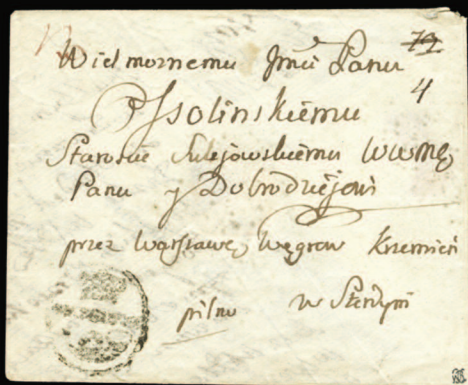 79
4
Wielmoznemu Jmci Panu
Ossolinskiemu
Staroscie Sulejowskiemu WWMę
Panu y Dobrodziejowi
przez Warszawę Węgrow Krzemień
pilno w Sterdyni